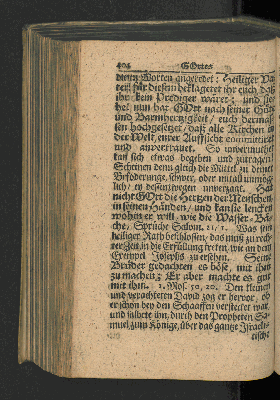 404 GOttes
diesen Worten angeredet: Heiliger Va-
ter! für diesem beklagetet ihr euch daß
ihr kein Prediger wäret; und se-
het nun hat GOtt nach seiner Güte
und Barmhertzigkeit / euch dermaß-
sen hochgesetzet / daß alle Kirchen in
der Welt, eurer Auffsicht committiret
und anvertrauet. So unvermuthet
kan sich etwas begeben und zutragen
Scheinen denn gleich die Mittel zu deiner
Beförderunge, schwer, oder wohl unmög-
lich / ey desentwegen unverzagt. Hat
nicht GOtt die Hertzen der Menschen
in seinen Händen / und kan sie lencken
wohin er will, wie die Wasser-Bä-
che, Sprüche Salom. 21/1. Was sein
heiliger Rath beschlossen, das muß zu rech-
ter Zeit, in die Erfüllung treten, wie an dem
Exempel Josephs zu ersehen. Seine
Brüder gedachten es böse, mit ihm
zu machen; Er aber machte es gut
mit ihm. 1. Mos. 50, 20. Den kleinen
und verachteten David zog er hervor, ob
er schon bey den Schaaffen verstecket war,
und salbete ihn, durch den Propheten Sa-
muel zum Könige, über das gantze Israeli-
tische